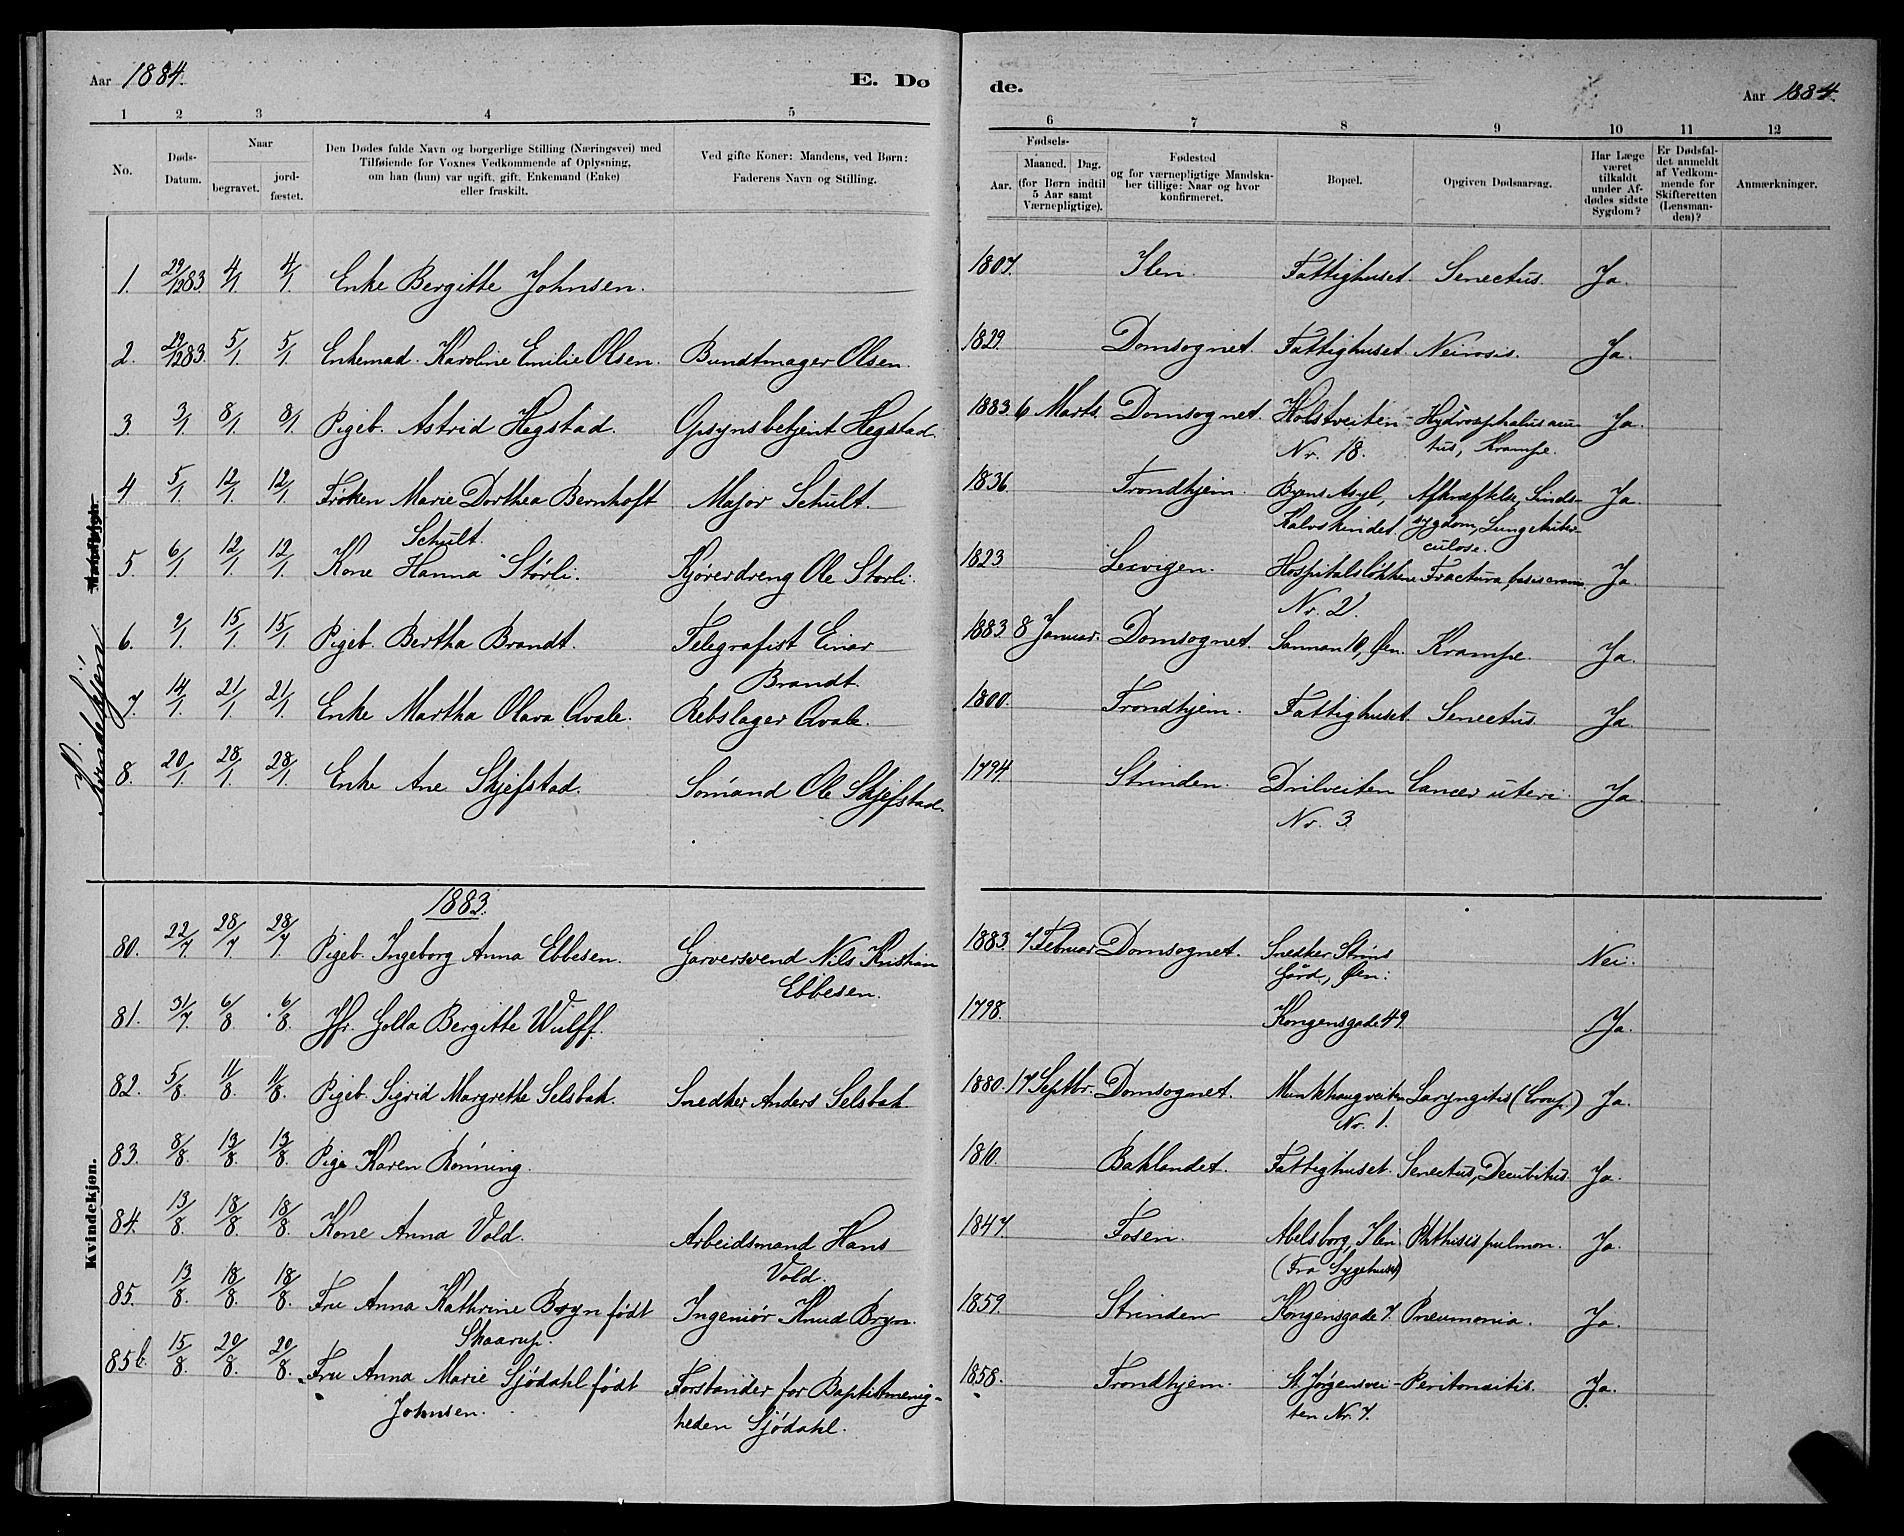 Aar 1884.
E. Dø
de.
Aar 1884.
1 2 3 4 5
6 7 8 9 10 11 12
No.
Døds-
Datum.
Naar
begravet.
jord-
fæstet.
Den Dødes fulde Navn og borgerlige Stilling (Næringsvei) med
Tilføiende for Voxnes Vedkommende af Oplysning,
om han (hun) var ugift, gift, Enkemand (Enke)
eller fraskilt.
Ved gifte Koner: Mandens, ved Børn:
Faderens Navn og Stilling.
Fødsels-
Aar.
Maaned. Dag.
(for Børn indtil
5 Aar samt
Værnepligtige).
Fødested
og for værnepligtige Mandska-
ber tillige: Naar og hvor
konfirmeret.
Bopæl.
Opgiven Dødsaarsag.
Har Læge
været
tilkaldt
under Af-
dødes sidste
Sygdom?
Er Dødsfal-
det anmeldt
af Vedkom-
mende for
Skifteretten
(Lensman-
den)?
Anmærkninger.
Kvindekjön
1. 29/12 83. 4/1 4/1 Enke Bergitte Johnsen. 1807. Ilen. Fattighuset. Senectus. Ja.
2. 29/12 83. 5/1 5/1 Enkemad. Karoline Emilie Olsen. Bundtmager Olsen. 1829. Domsognet. Fattighuset. Neirosis. Ja.
3. 3/1 8/1 8/1 Pigeb. Astrid Hegstad. Opsynsbetjent Hegstad. 1883. 6 Marts. Domsognet. Holstveiten Hydrocephalus acu-
Nr. 18. tus, Krampe. Ja.
4 5/1 12/1 12/1 Fröken Marie Dorthea Bernhoft Major Schult. 1836. Trondhjem. Byens Asyl, Afkræftelse, Sinds- Ja.
Schult. Kalvskindet. sygdom, Lungetuber-
culose.
5. 6/1 12/1 12/1 Kone Hanna Störli. Kjörerdreng Ole Störli. 1823 Lexvigen. Hospitalslökkene Fractura basis cranii Ja.
Nr. 2.
6. 9/1 15/1 15/1 Pigeb. Bertha Brandt. Telegrafist Einar 1883 8 Januar. Domsognet. Sannan 10, Øen. Krampe. Ja.
Brandt.
7. 14/1 21/1 21/1 Enke Martha Olava Qvale. Rebslager Qvale. 1800. Trondhjem. Fattighuset. Senectus Ja
8. 20/1 28/1 28/1 Enke Ane Skjefstad. Sömand Ole Skjefstad. 1794 Strinden. Drilveiten Cancer uteri. Ja.
Nr. 3.
1883.
Kvindekjøn.
80. 22/7 28/7 28/7 Pigeb. Ingeborg Anna Ebbesen. Garversvend Nils Kristian 1883. 7 Februar Domsognet. Snedker Ströms Nei.
Ebbesen. Gård, Øen.
81. 31/7. 6/8 6/8. Jfr. Golla Bergitte Wulff. 1798. Kongensgade 49. Ja.
82. 5/8 11/8 11/8. Pigeb. Sigrid Margrethe Selsbak. Snedker Anders Selsbak. 1880. 17 Septbr. Domsognet. Munkhaugveiten Laryngitis (Croup.) Ja.
Nr. 1.
83. 8/8. 13/8 13/8. Pige Karen Rönning. 1810. Baklandet. Fattighuset. Senectus, Decubitus. Ja.
84. 13/8 18/8 18/8. Kone Anna Vold. Arbeidsmand Hans 1847. Fosen. Abelsborg, Ilen Phthisis pulmon. Ja.
Vold. (Fra Sygehuset)
85. 13/8. 18/8. 18/8. Fru Anna Kathrine Bryn födt Ingeniör Knud Bryn. 1859. Strinden Kongensgade 7. Pneumonia. Ja.
Skaarup.
85b. 15/8 20/8. 20/8. Fru Anna Marie Sjödahl födt Forstander for Baptistmenig- 1858. Trondhjem. St. Jørgensvei- Peritonitis. Ja.
Johnsen. heden Sjödahl. ten Nr. 7.